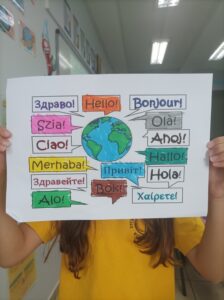 Здраво!
Hello!
Bonjour!
Szia!
Olá!
Ciao!
Ahoj!
Merhaba!
Hallo!
Привіт!
Здравейте!
Hola!
Bok!
Alo!
Χαίρετε!